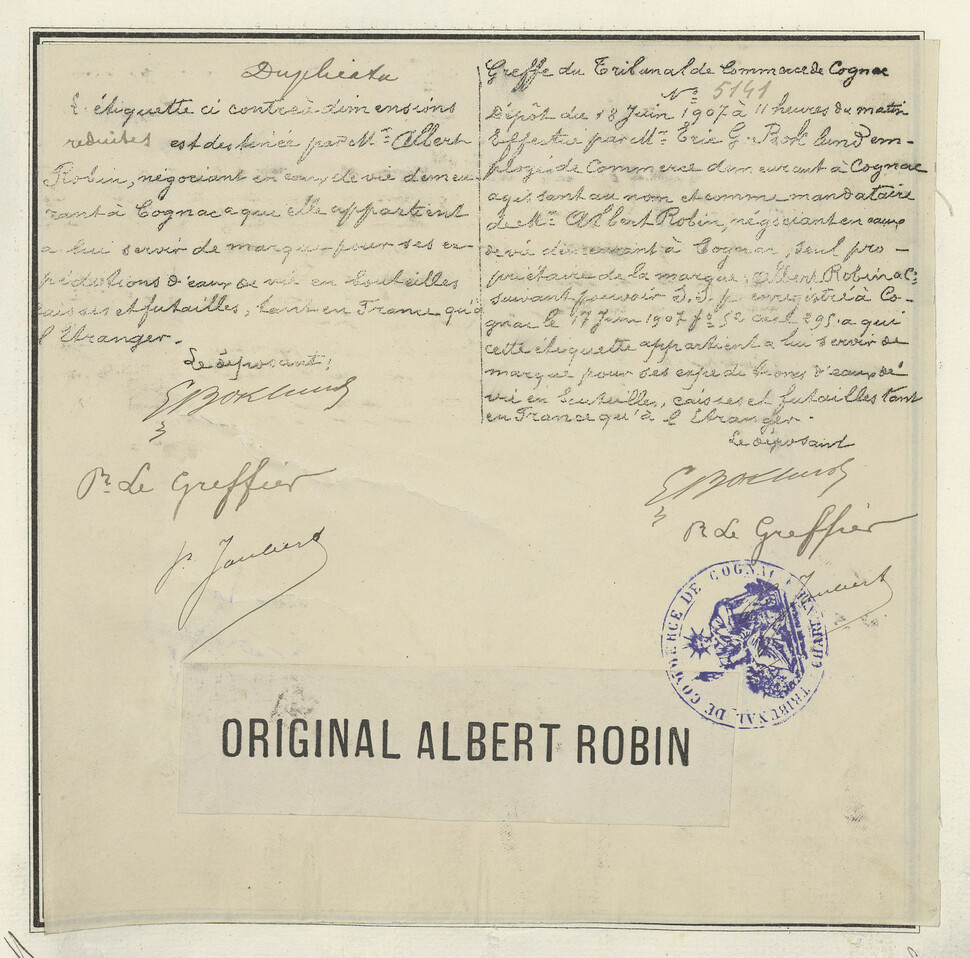 Duplicata
L'étiquette ci contre à dimensions
reduites est destinée par Mr. Albert
Robin, négociant en eaux de vie demeu
rant à Cognac a qui elle appartient
a lui servir de marque pour ses ex
péditions d'eaux de vie en bouteilles
caisses et futailles, tant en France qu'à
l'Etranger.
Le déposant:
E Boklund
Pr. Le Greffier
P. Joubert
Greffe du Tribunal de Commerce de Cognac
No. 5141
Dépôt du 18 Juin 1907 à 11 heures du matin
Effectué par Mr. Eric G. Boklund em-
ployé de Commerce demeurant à Cognac
agissant au nom et comme mandataire
de Mr. Albert Robin, négociant en eaux
de vie demeurant à Cognac, seul pro-
priétaire de la marque, Albert Robin & Cie
suivant pouvoir S.S.p. enregistré à Co-
gnac le 17 Juin 1907 fo 52 case 295. a qui
cette étiquette appartient a lui servir de
marque pour ses expéditions d'eaux de
vie en bouteilles, caisses et futailles tant
en France qu'à l'Etranger.
Le déposant
E Boklund
Pr Le Greffier
Joubert
TRIBUNAL DE COMMERCE DE COGNAC
ORIGINAL ALBERT ROBIN